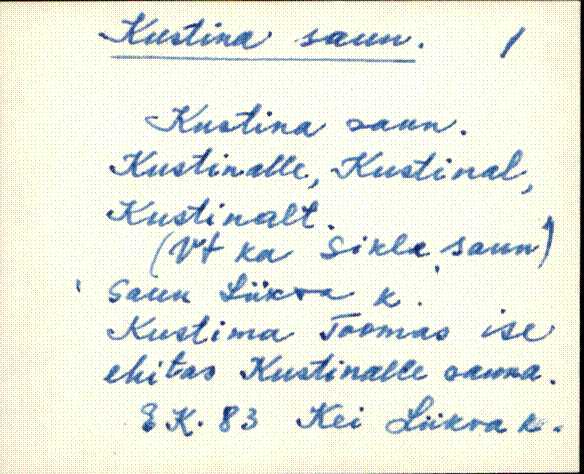 Kustina saun. 1
Kustina saun.
Kustinalle, Kustinal,
Kustinalt.
(Vt ka Sikla saun)
Saun Liikva k.
Kustima Toomas ise
ehitas Kustinalle sauna.
EK. 83 Kei Liikva k.